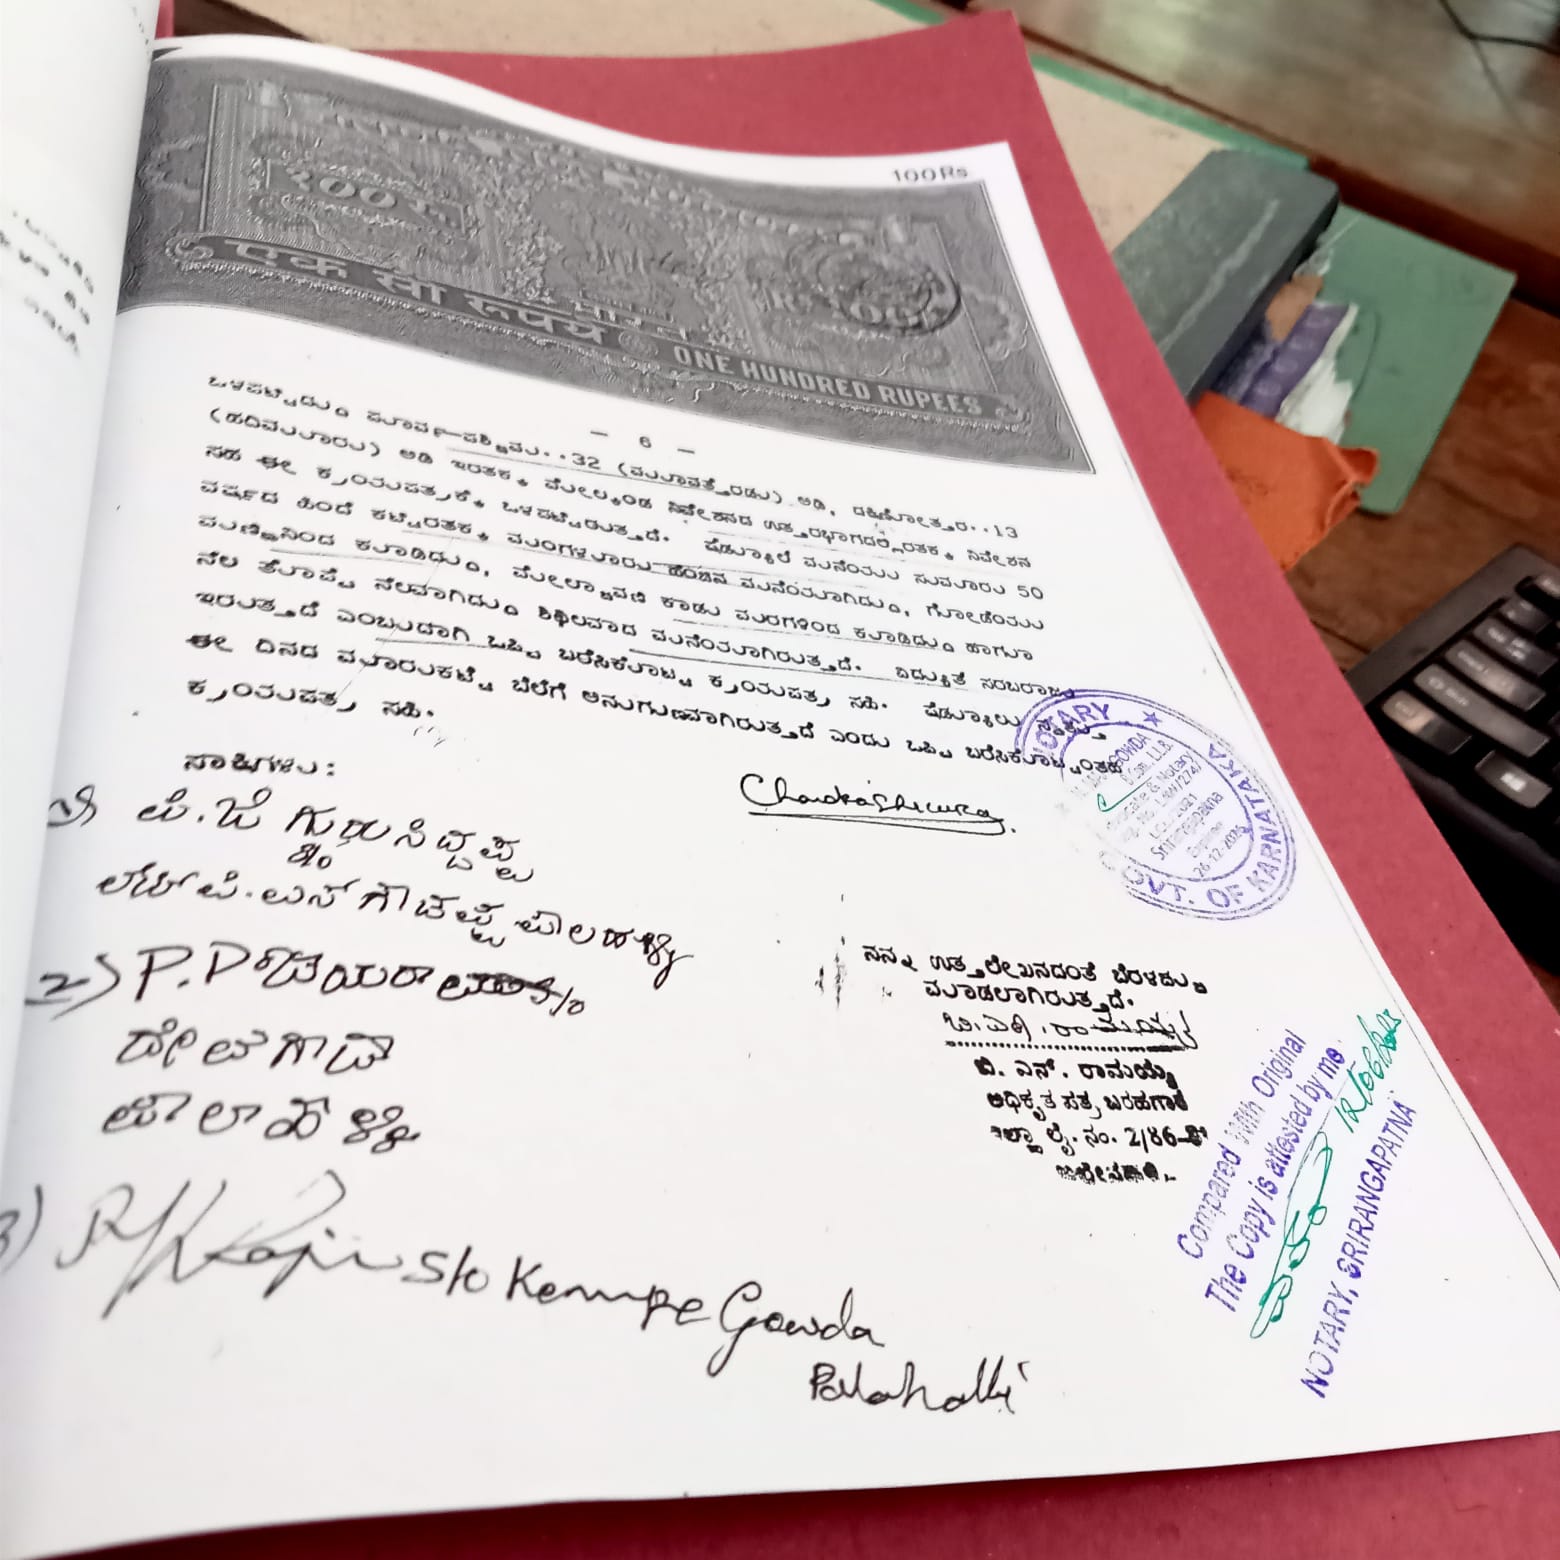 100Rs
१०० रु
Rs. 100
एक सौ रुपये
भारत
ONE HUNDRED RUPEES
- 6 -
ಒಳಪಟ್ಟಿದ್ದು ಪೂರ್ವ-ಪಶ್ಚಿಮ..32 (ಮೂವತ್ತೆರಡು) ಅಡಿ, ದಕ್ಷಿಣೋತ್ತರ..13
(ಹದಿಮೂರು) ಅಡಿ ಇರತಕ್ಕ ಮೇಲ್ಕಂಡ ನಿವೇಶನದ ಉತ್ತರಭಾಗದಲ್ಲಿರತಕ್ಕ ನಿವೇಶನ
ಸಹ ಈ ಕ್ರಯಪತ್ರಕ್ಕೆ ಒಳಪಟ್ಟಿರುತ್ತದೆ. ಷೆಡ್ಯೂಲ್ ಮನೆಯು ಸುಮಾರು 50
ವರ್ಷದ ಹಿಂದೆ ಕಟ್ಟಿರತಕ್ಕ ಮಂಗಳೂರು ಹೆಂಚಿನ ಮನೆಯಾಗಿದ್ದು, ಗೋಡೆಯು
ಮಣ್ಣಿನಿಂದ ಕೂಡಿದ್ದು, ಮೇಲ್ಛಾವಣಿ ಕಾಡು ಮರಗಳಿಂದ ಕೂಡಿದ್ದು ಹಾಗೂ
ನೆಲ ತೊಪ್ಪೆ ನೆಲವಾಗಿದ್ದು ಶಿಥಿಲವಾದ ಮನೆಯಾಗಿರುತ್ತದೆ. ವಿದ್ಯುತ್ ಸರಬರಾಜು
ಇರುತ್ತದೆ ಎಂಬುದಾಗಿ ಒಪ್ಪಿ ಬರೆಸಿಕೊಟ್ಟ ಕ್ರಯಪತ್ರ ಸಹಿ. ಷೆಡ್ಯೂಲು ಸ್ವತ್ತು
ಈ ದಿನದ ಮಾರುಕಟ್ಟೆ ಬೆಲೆಗೆ ಅನುಗುಣವಾಗಿರುತ್ತದೆ ಎಂದು ಒಪ್ಪಿ ಬರೆಸಿಕೊಟ್ಟಂತಹ
ಕ್ರಯಪತ್ರ ಸಹಿ.
ಸಾಕ್ಷಿಗಳು:
NOTARY
GOWDA
B.Com, LL.B.
Advocate & Notary
Srirangapatna
26-12-2026
GOVT. OF KARNATAKA
1) ಪಿ.ಜೆ ಗುರುಸಿದ್ದಪ್ಪ
ಲೇಟ್ ಪಿ.ಎಸ್ ಗೌಡಪ್ಪ ಪಾಲಹಳ್ಳಿ
2) P.P ಜಯರಾಮ
ದೇವೇಗೌಡ
ಪಾಲಹಳ್ಳಿ
3) S/o Kempe Gowda
Palahalli
ನನ್ನ ಉಕ್ತಲೇಖನದಂತೆ ಬೆರಳಚ್ಚು
ಮಾಡಲಾಗಿರುತ್ತದೆ.
ಬಿ.ಎನ್.ರಾಮಯ್ಯ
ಬಿ. ಎನ್. ರಾಮಯ್ಯ
ಅಧಿಕೃತ ಪತ್ರ ಬರಹಗಾರ
ಲೈ. ನಂ. 2/86-
Compared With Original
The Copy is attested by me.
NOTARY, SRIRANGAPATNA